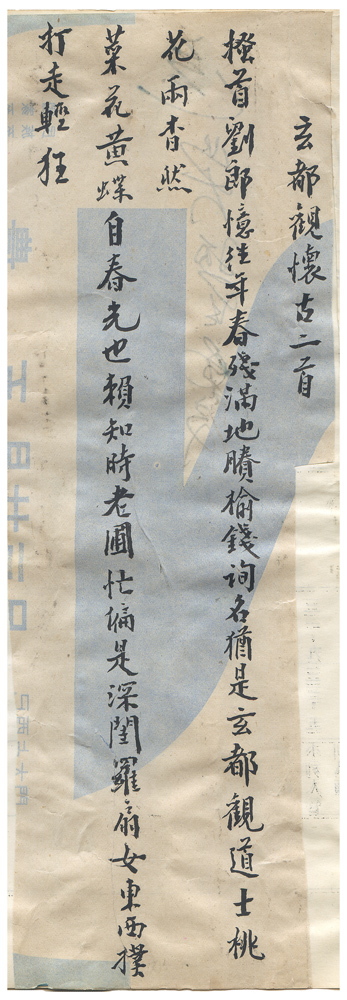 玄都觀懷古二首
搔首劉郎憶往年春殘滿地賸榆錢詢名猶是玄都觀道士桃
花兩杳然
菜花黄蝶自春光也賴知時老圃忙偏是深閨羅扇女東西撲
打走輕狂